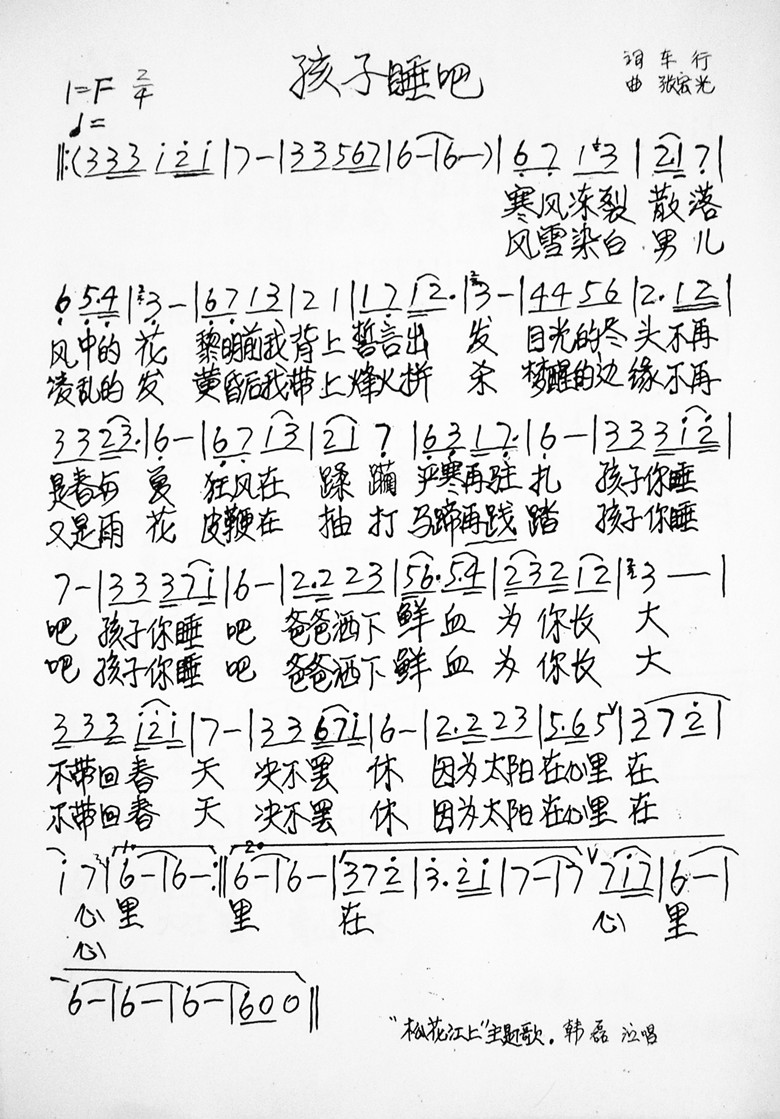 孩子睡吧
词 车行
曲 张宏光
1=F 2/4
♩=
‖:(3 3 3 i 2 i | 7 - | 3 3 5 6 7 | 6 - | 6 - ) | 6 7 1 3 | 2 1 7 |
寒风冻裂 散落
风雪染白 男儿
6 5·4 | 3 - | 6 7 1 3 | 2 1 | 1 7 1 2· | 3 - | 4 4 5 6 | 2· 1 2 |
风中的 花 黎明前我 背上 誓言出 发 目光的尽 头不再
凌乱的 发 黄昏后我 带上 烽火拼 杀 梦醒的边 缘不再
3 3 2 3· | 6 - | 6 7 1 3 | 2 1 7 | 6 3 1 7· | 6 - | 3 3 3 i 2 |
是春与 夏 狂风在 蹂 躏 严寒再驻 扎 孩子你睡
又是雨 花 皮鞭在 抽 打 马蹄再践 踏 孩子你睡
7 - | 3 3 3 7 i | 6 - | 2·2 2 3 | 5 6·5·4 | 2 3 2 1 2 | 3 — |
吧 孩子你睡 吧 爸爸洒下 鲜血 为你长 大
吧 孩子你睡 吧 爸爸洒下 鲜血 为你长 大
3 3 3 i 2 i | 7 - | 3 3 6 7 i | 6 - | 2·2 2 3 | 5·6 5 ∨ | 3 7 2 |
不带回春 天 决不罢 休 因为太阳 在心里 在
不带回春 天 决不罢 休 因为太阳 在心里 在
i 7 | 1. 6 - | 6 - :‖ 2. 6 - | 6 - | 3 7 2 | 3· 2 i | 7 - | 7 ∨ 7 i 7 | 6 - |
心 里 里 在 心 里
心
6 - | 6 - | 6 - | 6 0 0 ‖
“松花江上”主题歌. 韩磊 演唱